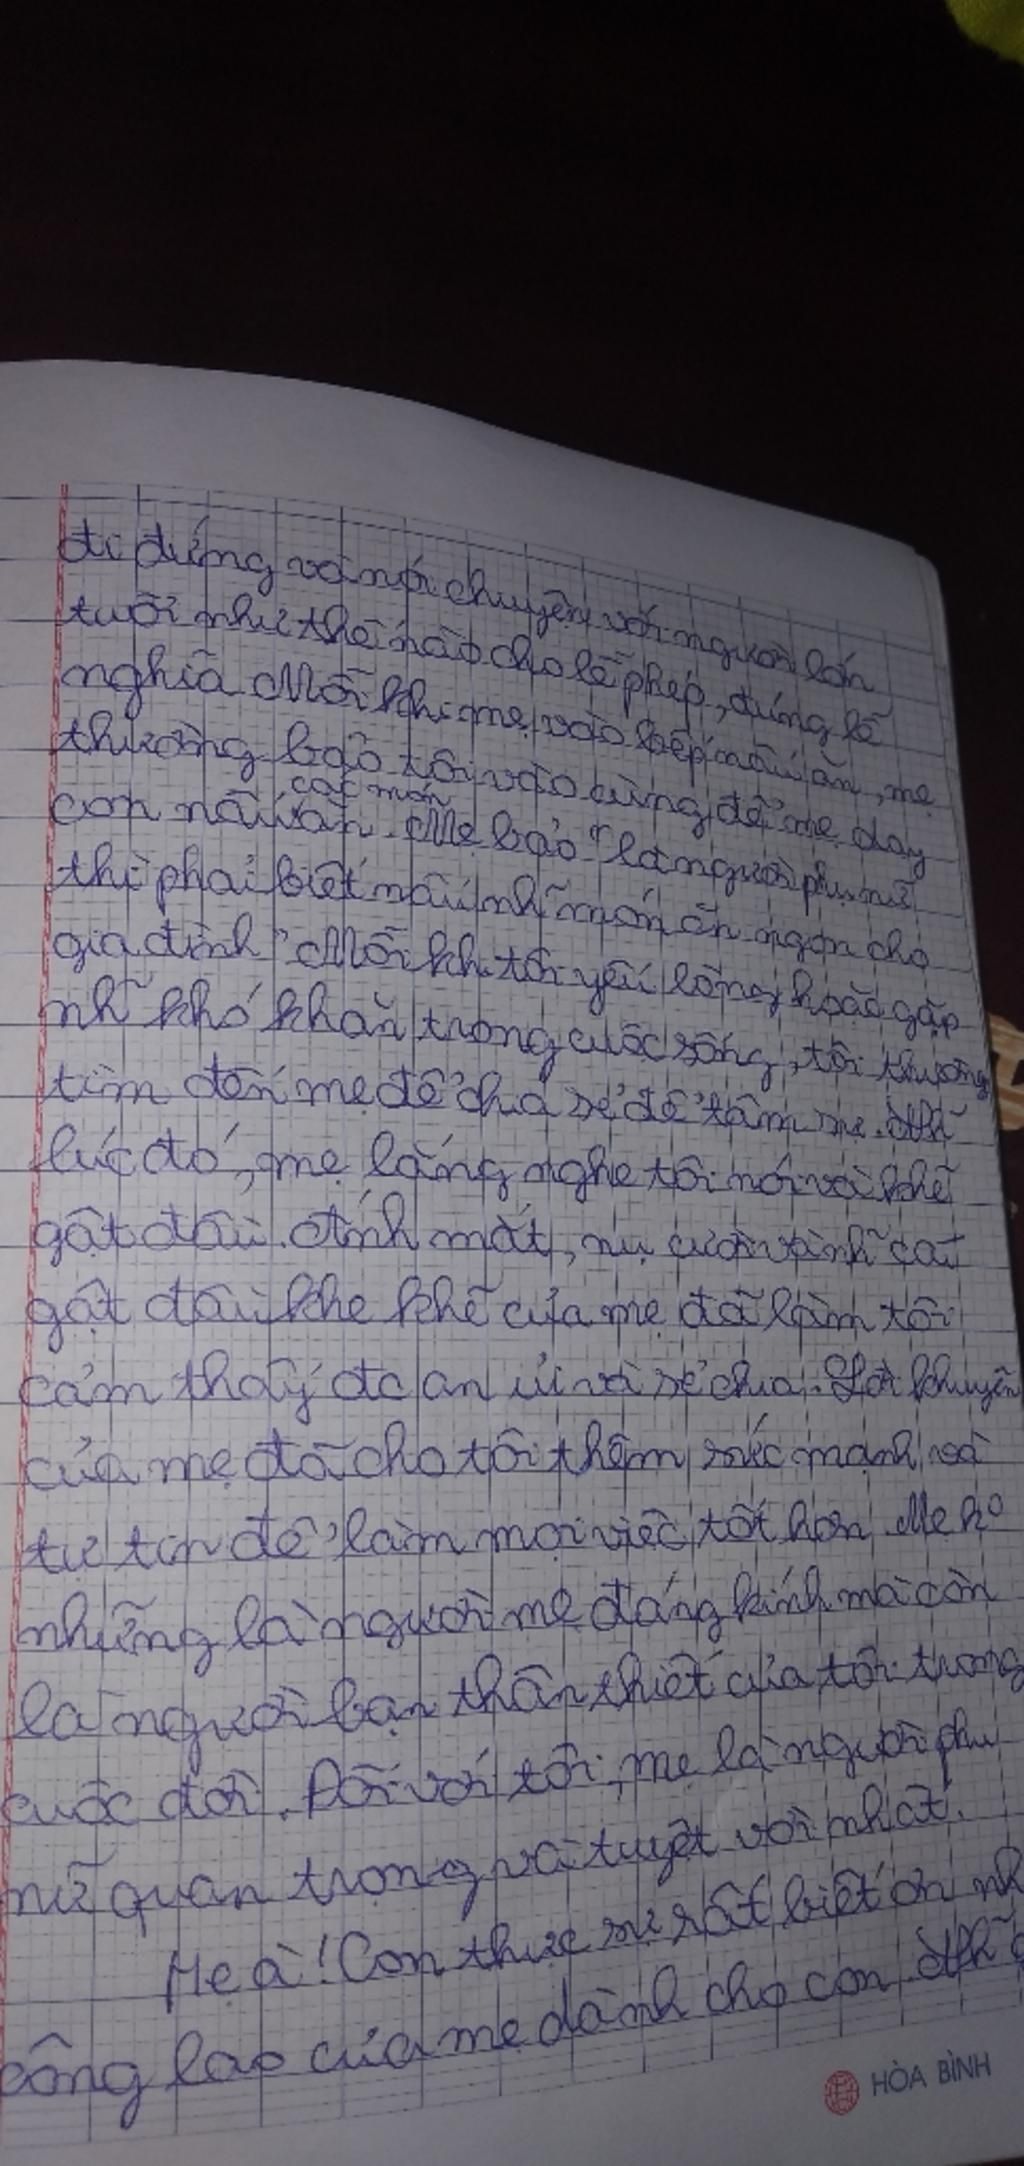 đi đứng và nói chuyện với người lớn
tuổi như thế nào cho lễ phép, đúng lễ
nghĩa. Mỗi khi mẹ vào bếp nấu ăn, mẹ
thường bảo tôi vào cùng để mẹ dạy
các món
con nấu ăn. Mẹ bảo "là người phụ nữ
thì phải biết nấu nh~ món ăn ngon cho
gia đình". Mỗi khi tôi yếu lòng hoặc gặp
nh~ khó khăn trong cuộc sống, tôi thường
tìm đến mẹ để chia sẻ để tâm sự. Nh~
lúc đó, mẹ lắng nghe tôi nói và khẽ
gật đầu. Ánh mắt, nụ cười và nh~ cái
gật đầu khe khẽ của mẹ đã làm tôi
cảm thấy đc an ủi và sẻ chia. Lời khuyên
của mẹ đã cho tôi thêm sức mạnh và
tự tin để làm mọi việc tốt hơn. Mẹ ko
những là người mẹ đáng kính mà còn
là người bạn thân thiết của tôi trong
cuộc đời. Đối với tôi, mẹ là người phụ
nữ quan trọng và tuyệt vời nhất.
Mẹ à! Con thực sự rất biết ơn nh
công lao của mẹ dành cho con. Nh~
HÒA BÌNH